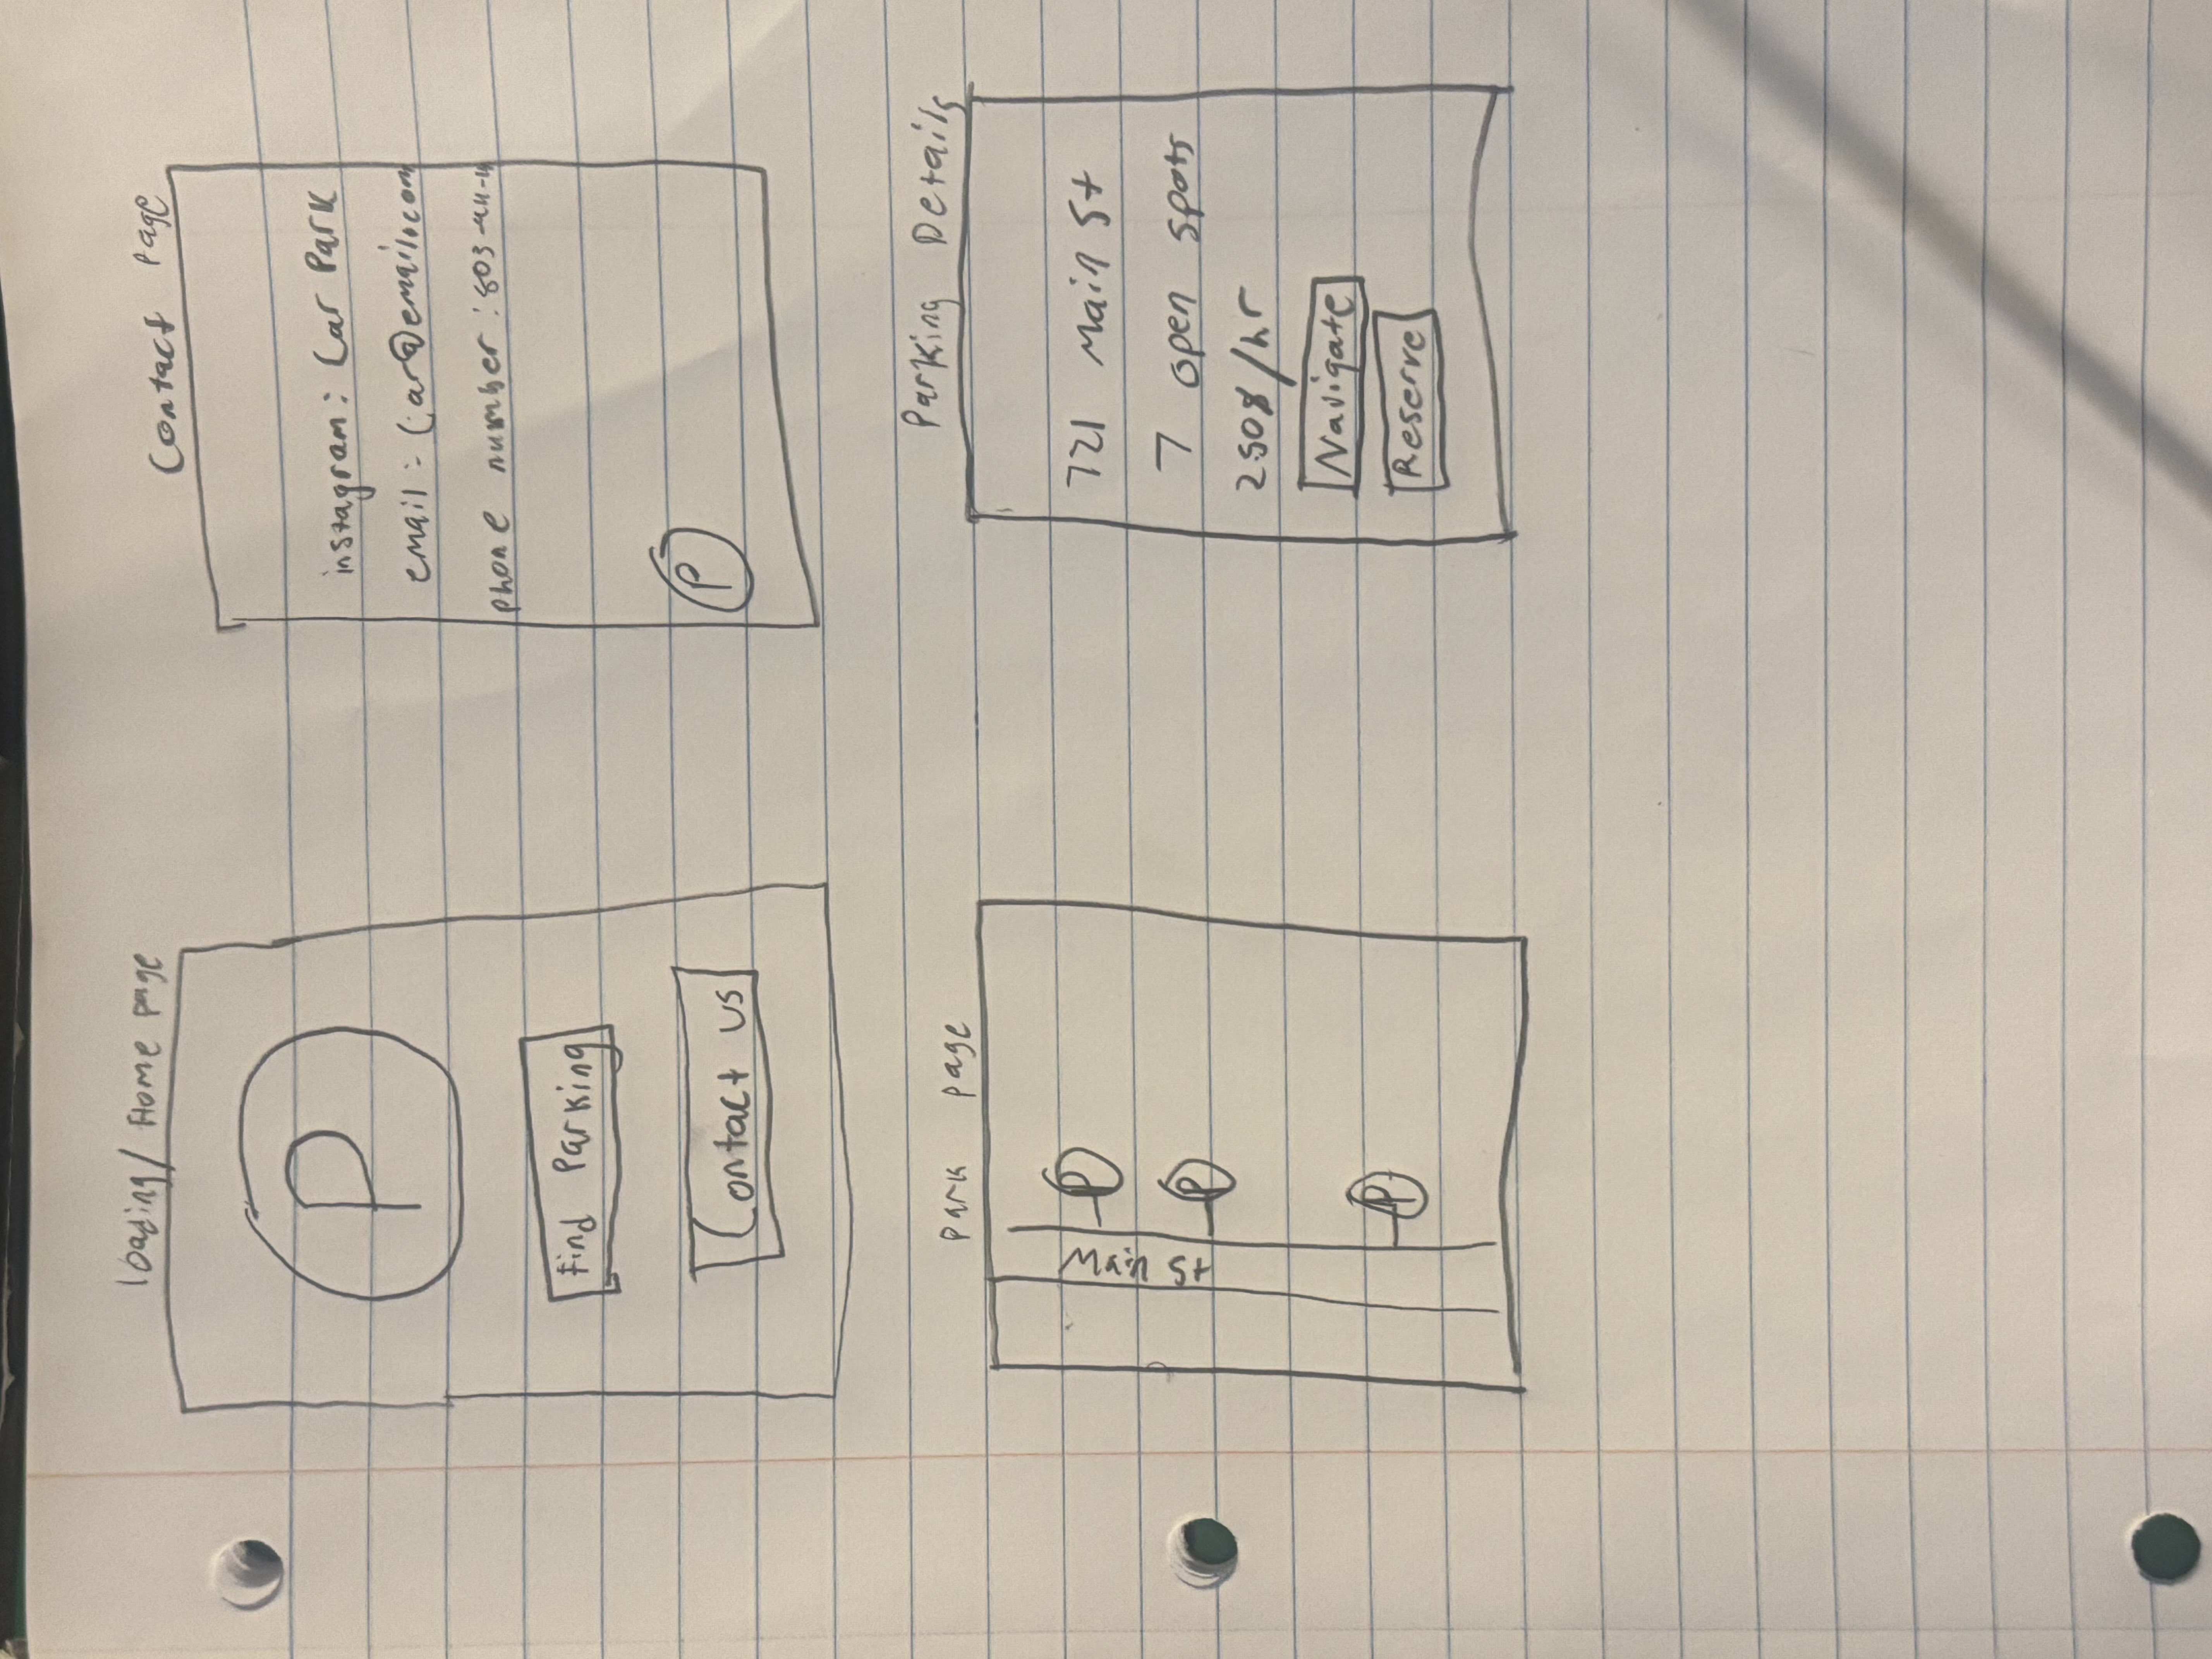 loading/ Home page
P
Find Parking
Contact us
Contact Page
instagram: Car Park
email: Car@email.com
phone number: 803-
P
Park page
Main St
P
P
P
Parking Details
721 Main St
7 open spots
/hr
Navigate
Reserve